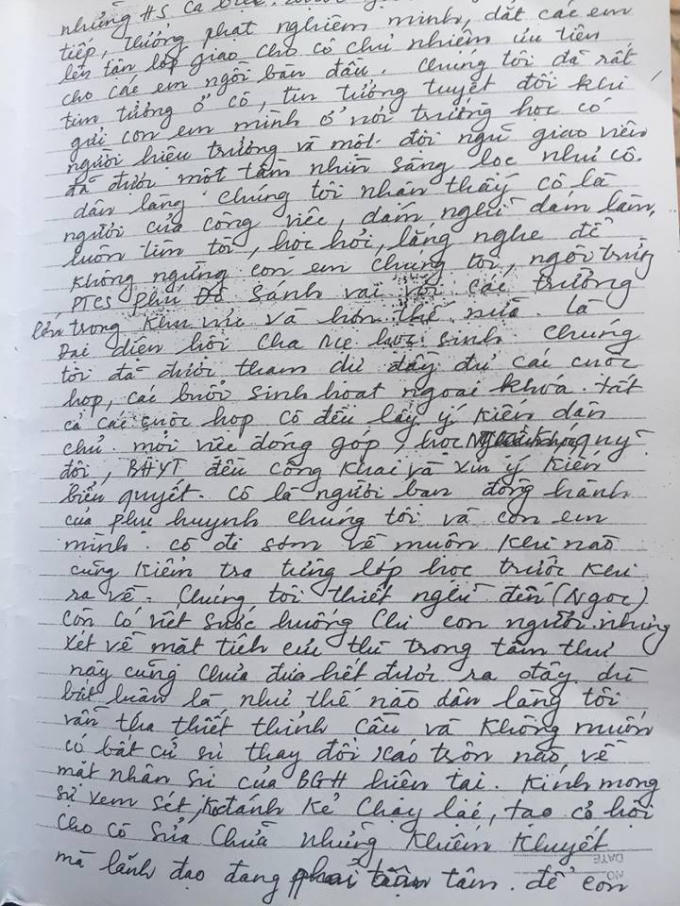 những HS, cá
tiếp, thưởng phạt nghiêm minh, dắt các em
lên tận lớp giao cho cô chủ nhiệm ưu tiên
cho các em ngồi bàn đầu. Chúng tôi đã rất
tin tưởng ở cô, tin tưởng tuyệt đối khi
gửi con em mình ở nơi trường học có
người hiệu trưởng và một đội ngũ giáo viên
đã được một tầm nhìn sàng lọc như cô.
dân làng chúng tôi nhận thấy cô là
người của công việc, dám nghĩ dám làm,
luôn tìm tòi, học hỏi, lắng nghe để
không ngừng con em chúng tôi, ngôi trường
PTCS Phú Đô sánh vai với các trường
lớn trong khu vực và hơn thế nữa. là
Đại diện hội cha mẹ học sinh. Chúng
tôi đã được tham dự đầy đủ các cuộc
họp, các buổi sinh hoạt ngoại khóa. tất
cả các cuộc họp cô đều lấy ý kiến dân
chủ. mỗi việc đóng góp, học quỹ
đội, BHYT đều công khai và xin ý kiến
biểu quyết. cô là người bạn đồng hành
của phụ huynh chúng tôi và con em
mình. cô đi sớm về muộn khi nào
cũng kiểm tra từng lớp học trước khi
ra về. Chúng tôi thiết nghĩ đến (Ngọc)
còn có viết sước huống chi con người. nhưng
xét về mặt tích cực thì trong tâm thư
này cũng chưa đưa hết được ra đây dù
bất luận là như thế nào dân làng tôi
vẫn tha thiết thỉnh cầu và không muốn
có bất cứ sự thay đổi xáo trộn nào, về
mặt nhân sự của BGH hiện tại. Kính mong
sự xem sét, đánh kẻ chạy lại, tạo cơ hội
cho cô sửa chữa những khiếm khuyết
mà lãnh đạo đang tâm. để con
DATE
NO